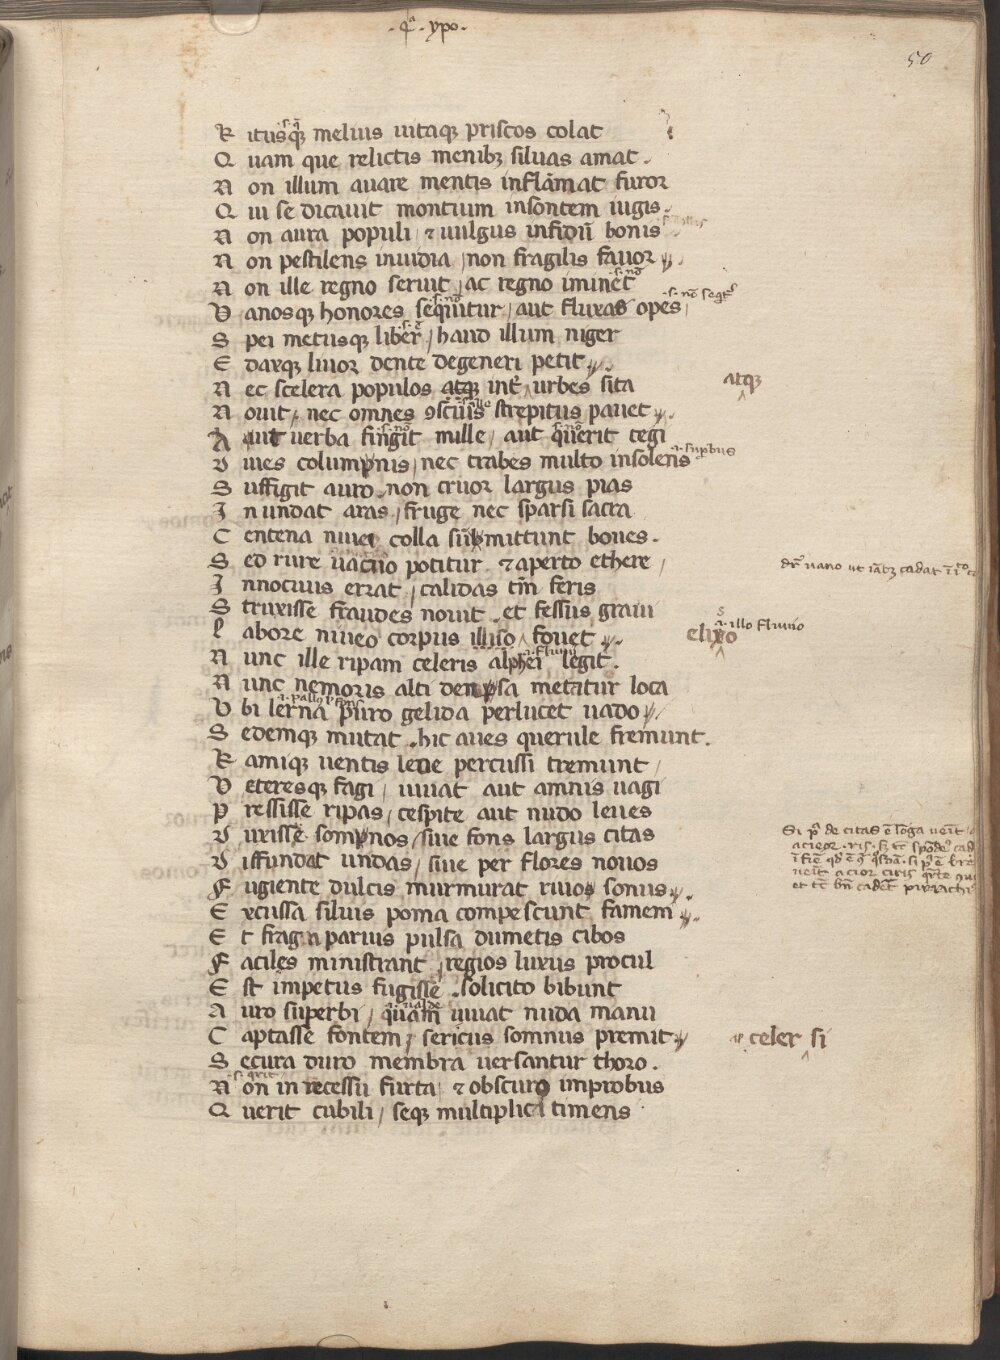 ·4a· ypo·
50
R itusq melius uitaq priscos colat
Q uam que relictis menib siluas amat.
N on illum auare mentis inflāmat furor
Q ui se dicauit montium insontem iugis.
N on aura populi / ⁊ uulgus infidū bonis
N on pestilens inuidia / non fragilis fauor
N on ille regno seruit / ac regno iminēs
V anosq honores sequitur / aut fluxas opes /
S pei metusq liber / haud illum niger
E daxq liuor dente degeneri petit
N ec scelera populos atq int urbes sita
atq
N ouit / nec omnes ꝯscius strepitus pauet
A ut uerba fingit mille / aut querit tegi
D iues columpnis / nec trabes multo insolens
i. supbus
S uffigit auro. non cruor largus pias
I nundat aras / fruge nec sparsi sacra
C entena niuei colla submittunt boues.
S ed rure uacuo potitur ⁊ aperto ethere /
I nnocuus errat / calidas tm̄ feris
S truxisse fraudes nouit. et fessus graui
L abore niueo corpus illiso fouet
elixo
i. illo fluuio
N unc ille ripam celeris alphei legit.
i. fluuii
N unc nemoris alti denpsa metatur loca
V bi lerna puro gelida perlucet uado
S edemq mutat. hic aues querule fremunt.
R amiq uentis lene percussi tremunt /
V eteresq fagi / iuuat aut amnis uagi
P ressisse ripas / cespite aut nudo leues
D uxisse sompnos / siue fons largus citas
D iffundat undas / siue per flores nouos
F ugiente dulcis murmurat riuo sonus
E xcussa siluis poma compescunt famem
E t fraga paruis pulsa dumetis cibos
F aciles ministrant / regios luxus procul
E st impetus fugisse. solicito bibunt
A uro superbi / quam iuuat nuda manu
i. ualde
C aptasse fontem / sericus somnus premit
celer si
S ecura duro membra uersantur thoro.
N on in recessu furta / ⁊ obscuro improbus
Q uerit cubili / seq multiplici timens